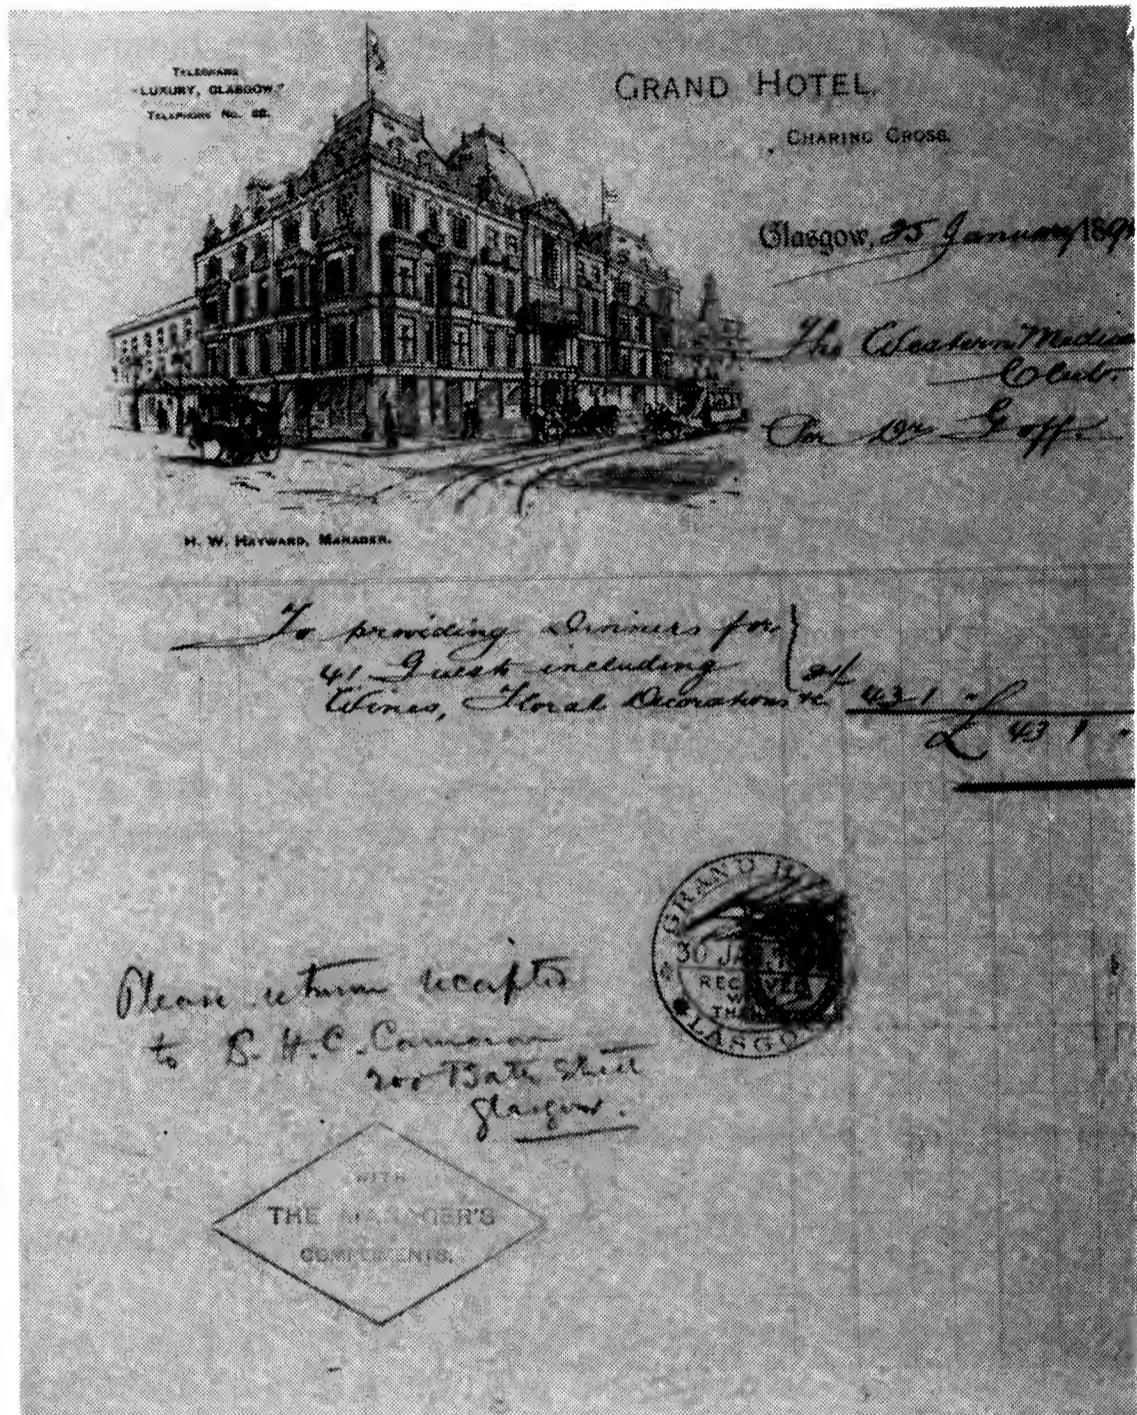 TELEGRAMS
"LUXURY, GLASGOW."
TELEPHONE No.
GRAND HOTEL.
CHARING CROSS.
Glasgow, 25 January 189
The Western Medica
Club.
Per Dr Goff.
H. W. HAYWARD, MANAGER.
To providing Dinners for
41 Guests including 21/
Wines, Floral Decorations &c 43 1 "
£ 43 1 "
GRAND
30 JA
RECEIVED
WITH
THANKS
GLASGOW
Please return receipted
to H.C. Cameron
200 Bath Street
Glasgow.
WITH
THE MANAGER'S
COMPLIMENTS.